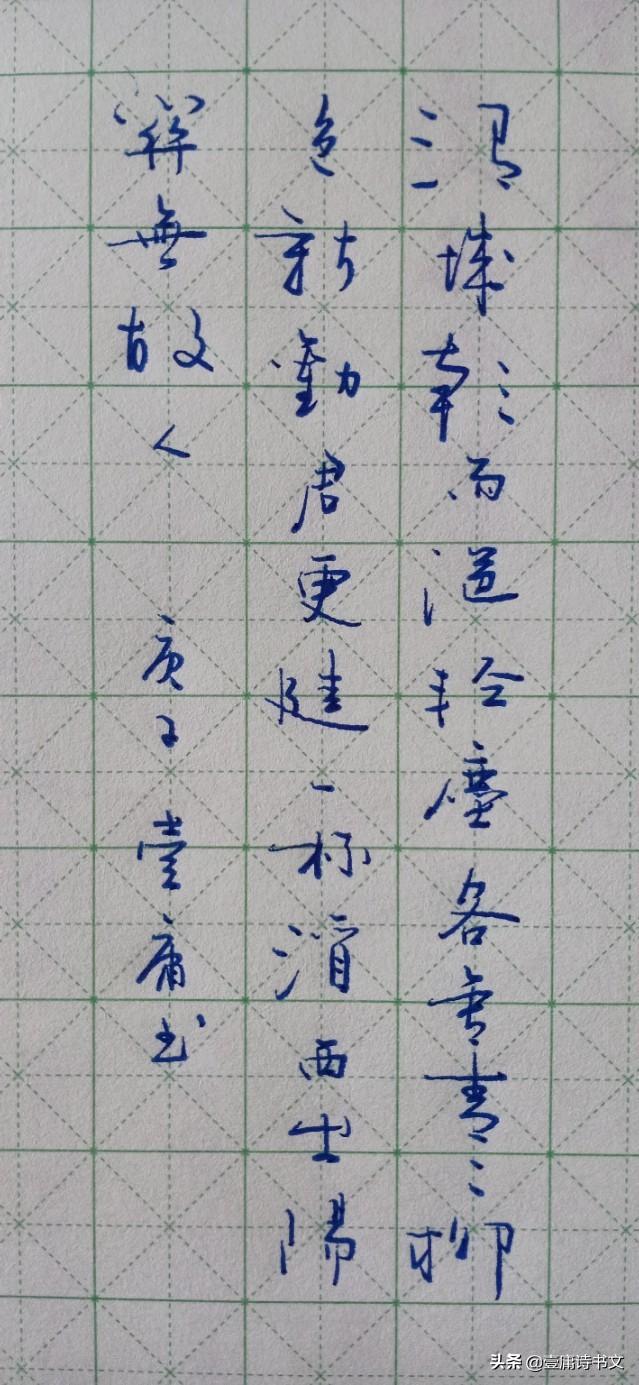 渭城朝雨浥轻塵客舍青〻柳
色新勸君更進一杯酒西出陽
關無故人 庚子壹庸书
头条 @壹庸诗书文